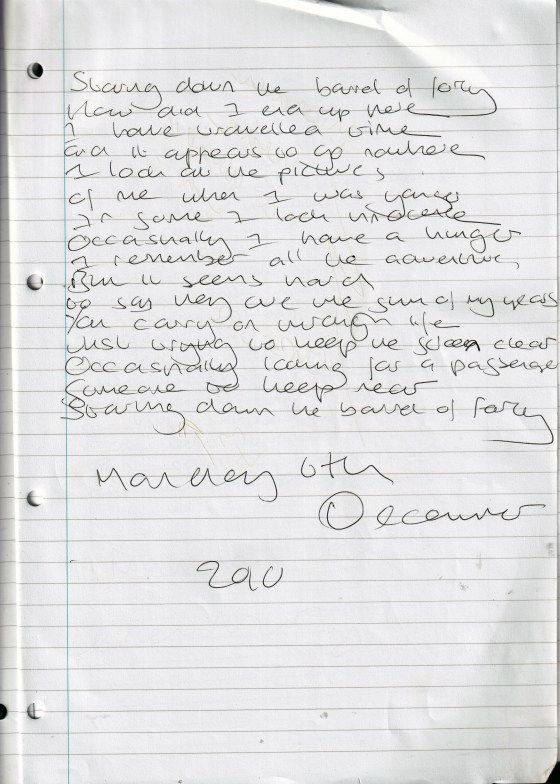 Staring down the barrel of forty
How did I end up here
I have travelled time
And it appears to go nowhere
I look at the pictures
Of me when I was younger
In some I look innocente
Occasionally I have a hunger
I remember all the adventures
But it seems hard
to say they are the sum of my years
You carry on through life
Just trying to keep the screen clear
Occasionally looking for a passenger
Someone to keep near
Staring down the barrel of forty
Monday 6th
December
2010